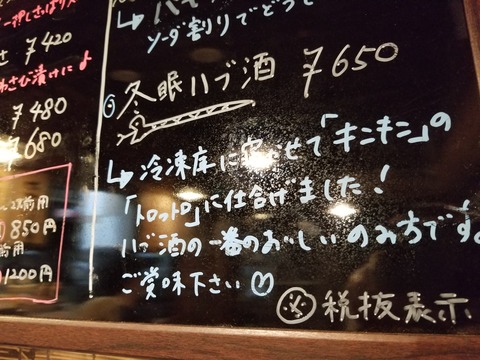 ソーダ割りでどう
⑤冬眠ハブ酒 ¥650
↳冷凍庫に寝かせて「キンキン」の
「トロットロ」に仕上げました!
ハブ酒の一番のおいしいのみ方です。
ご賞味下さい♡
※税抜表示
¥420
わさび漬けに♪
¥480
¥680
850円
1200円